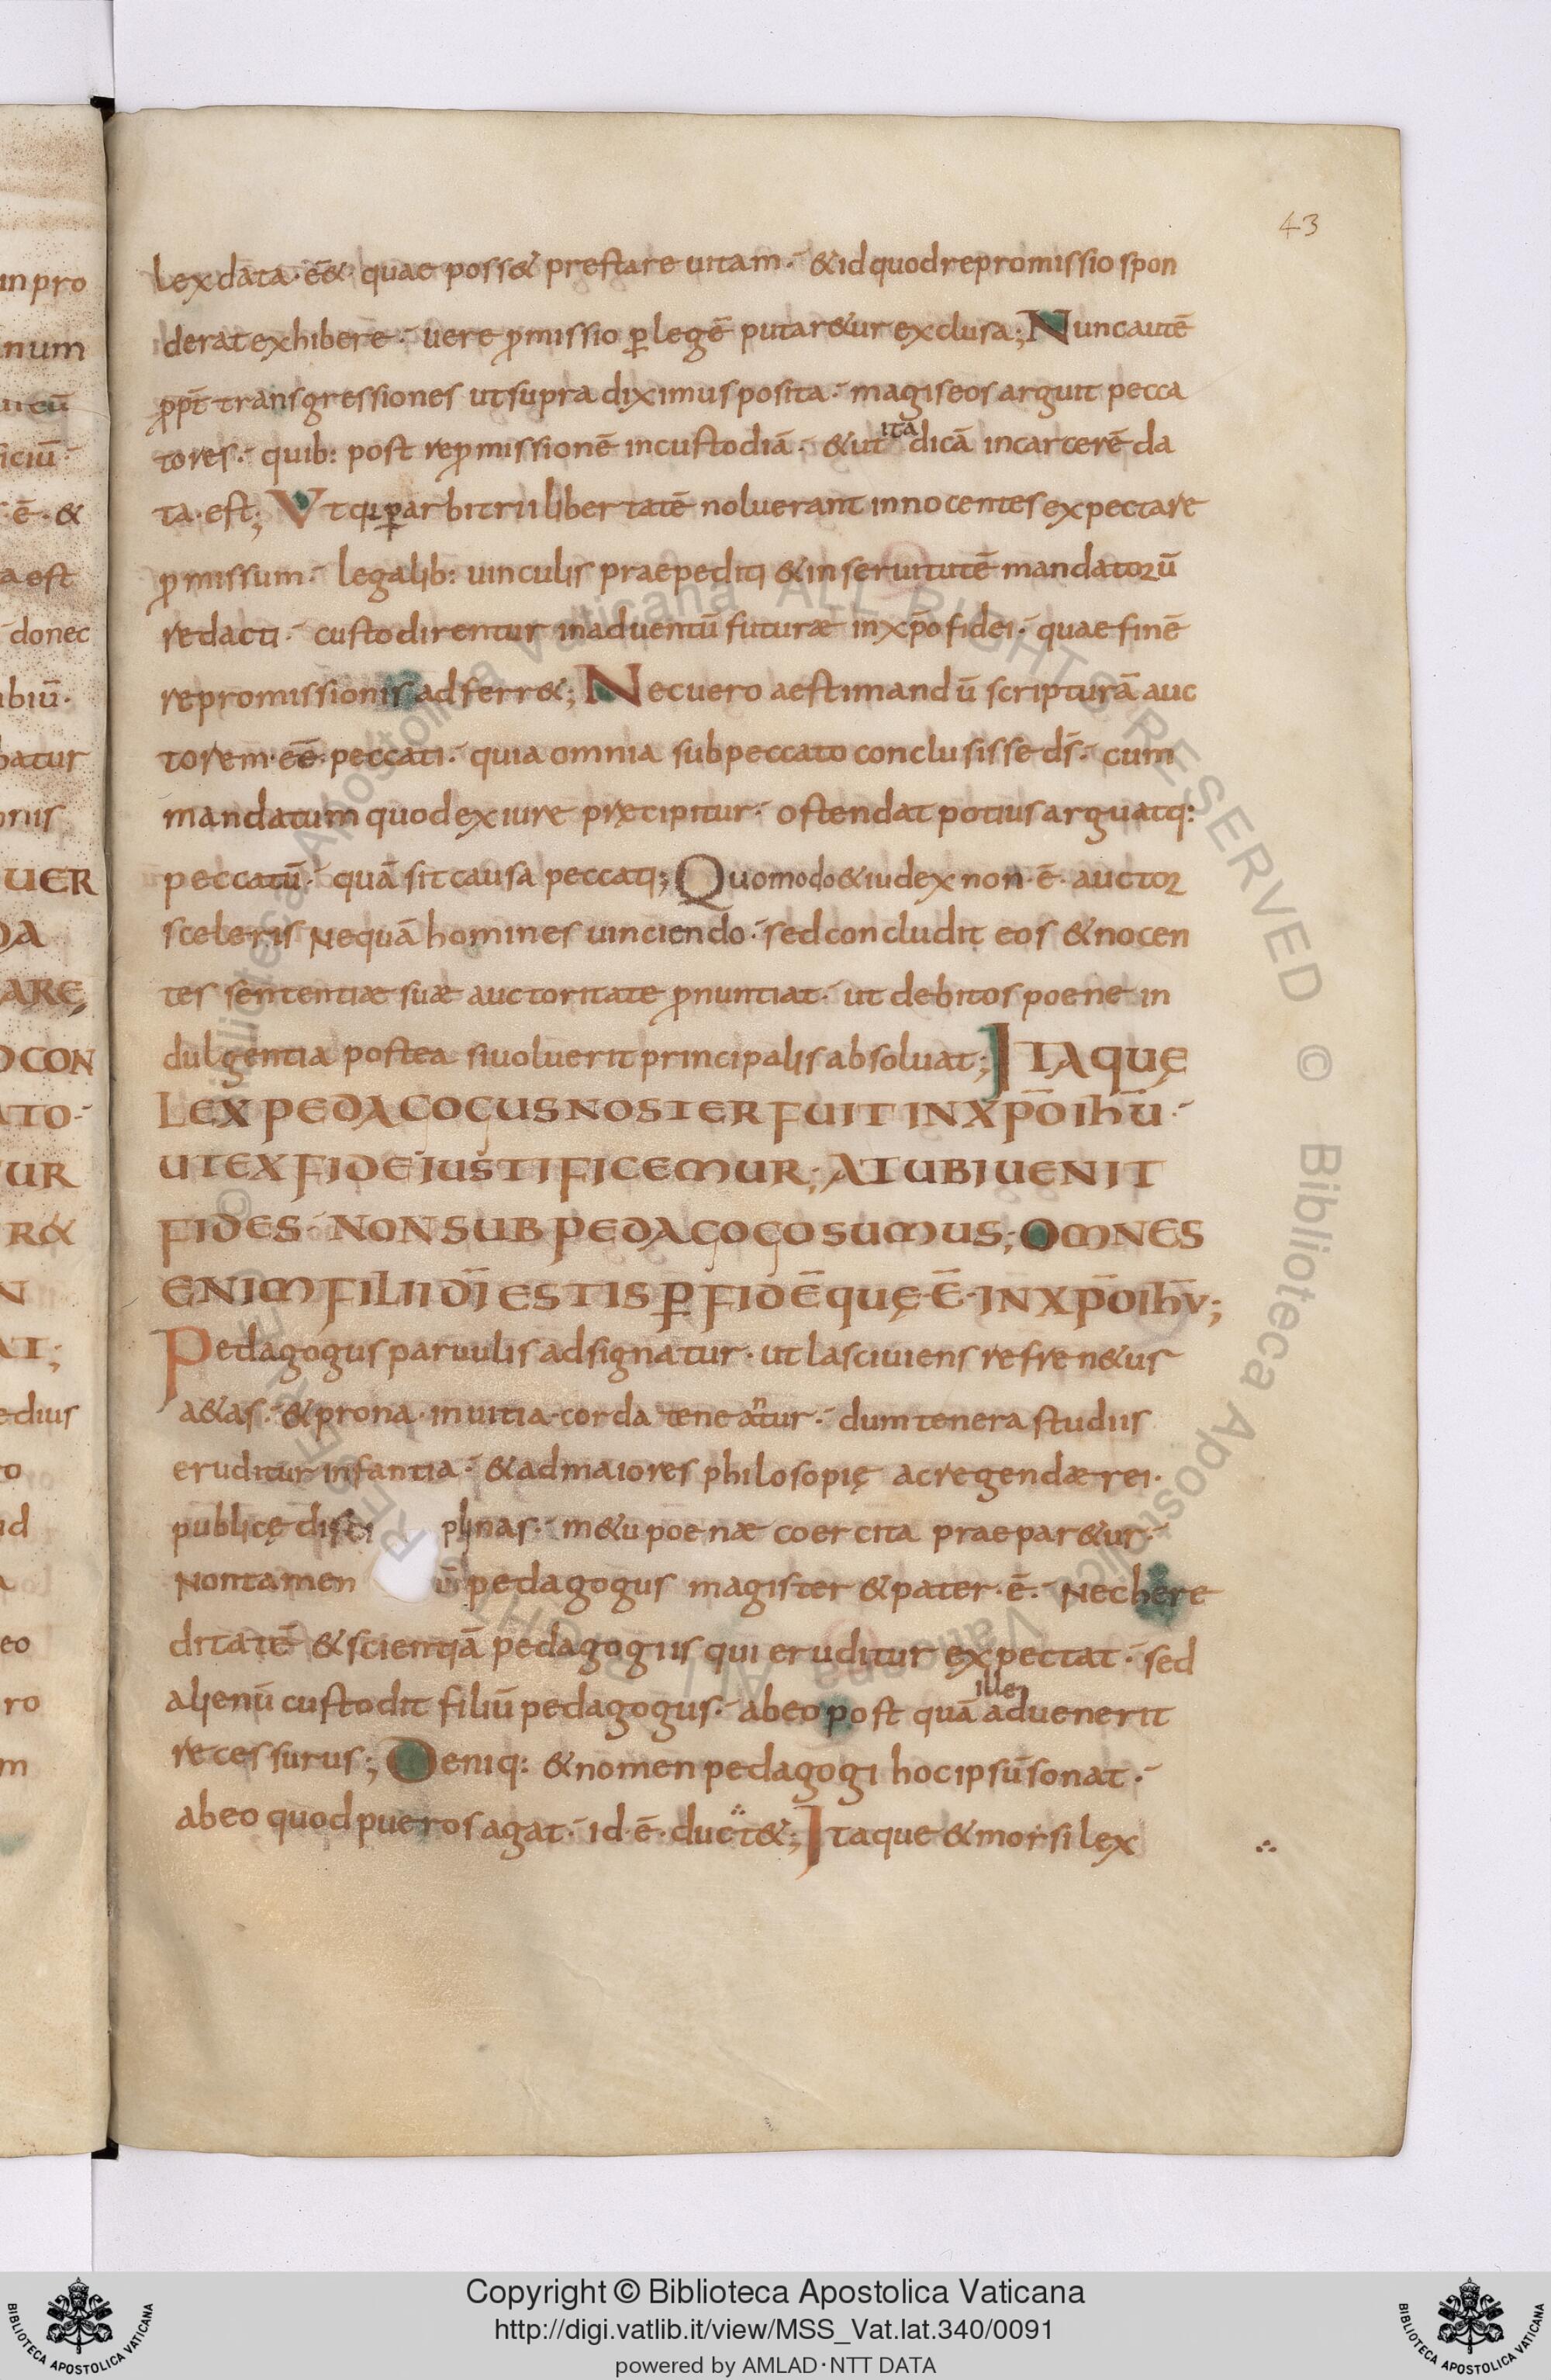 43
lex data · eē& · quae poss& prestare uitam · & id quod repromissio spon
derat exhibere · uere p̄missio p̱ legē putar&ur exclusa; Nunc autē
p̄pt̄ transgressiones ut supra diximus posita · magis eos arguit pecca
tores · quib: post rep̄missionē in custodiā · & ut itā dicā in carcerē da
ta · est; Vt qui p̱ arbitrii libertatē noluerant innocentes expectare
p̄missum · legalib: uinculis praepediti & in seruitutē mandatorū
redacti · custodirentur in aduentū futuræ in xp̄o fidei · quae finē
repromissionis adferr&; Nec uero aestimandū scripturā auc
torem · eē · peccati · quia omnia sub peccato conclusisse ds̄ · cum
mandatum quod ex iure pręcipitur · ostendat potius arguatq:
peccatū · quā sit causa peccati; Quomodo & iudex non · ē · auctor
sceleris nequā homines uinciendo · sed concludit eos & nocen
tes sententiæ suæ auctoritate p̄nuntiat · ut debitos poene in
dulgentia postea si uoluerit principalis absoluat; ITAQUĘ
LEX PEDAGOGUS NOSTER FUIT IN XP̄O IHŪ ·
UT EX FIDE IUSTIFICEMUR; AT UBI UENIT
FIDES · NON SUB PEDAGOGO SUMUS; OMNES
ENIM FILII DĪ ESTIS P̱ FIDĒ QUĘ · Ē · IN XP̄O IHV̄;
Pedagogus paruulis adsignatur · ut lasciuiens refren&us
a&as · & prona · in uitia · corda teneantur · dum tenera studiis
eruditur infantia · & ad maiores philosopię ac regendæ rei ·
publicę disci plinas · m&u poenæ coercita praepar&ur ·
Non tamen ū pedagogus magister & pater · ē · Nec here
ditatē & scientiā pedagogiis qui eruditur expectat · sed
alienū custodit filiū pedagogus · ab eo post quā ille aduenerit
recessurus; Deniq: & nomen pedagogi hoc ipsū sonat ·
ab eo quod pueros agat · id · ē · duct&; Itaque & morsi lex
Copyright © Biblioteca Apostolica Vaticana
http://digi.vatlib.it/view/MSS_Vat.lat.340/0091
powered by AMLAD·NTT DATA